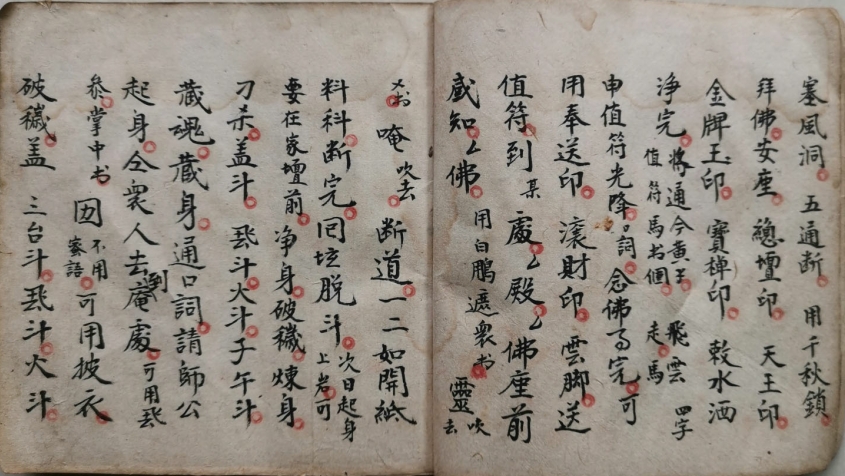 塞風洞 五通断 用千秋鎖
拜佛安座 總壇印 天王印
金牌玉印 寳棹印 敕水洒
净完 將通令黄王 飛雲 四字
值符馬书個 走馬
申值符光降 詞 念佛了完 可
用奉送印 滚財印 雲脚送
值符到 某處 殿 佛座前
感知 佛 用白鵬遮衆书 靈 吹去
唵 吹去 断道一二如開紙
料科断完 囘坛脱斗 次日起身上岩可
要在家壇前 净身破穢 煉身
刀杀盖斗 飛斗火斗子午斗
蔵魂蔵身 通口詞 請師公
起身 仝衆人去到庵處 可用飛
叅掌中书 因 不用蜜語 可用披衣
破穢盖 三台斗 飛斗 火斗